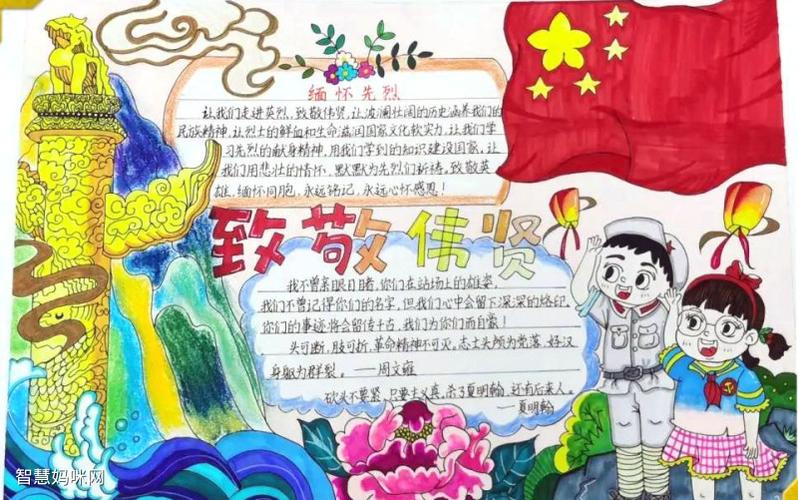 缅怀先烈
让我们走进英烈,致敬伟贤,让波澜壮阔的历史涵养我们的
民族精神,让烈士的鲜血和生命滋润国家文化软实力,让我们学
习先烈的献身精神,用我们学到的知识建设国家,让
我们用悲壮的情怀,默默为先烈们祈祷。致敬英
雄,缅怀同胞,永远铭记,永远心怀感恩!
致敬伟贤
我不曾亲眼目睹,你们在站场上的雄姿,
我们不曾记得你们的名字,但我们心中会留下深深的烙印,
你们的事迹将会留传千古,我们为你们而自豪!
头可断,肢可折,革命精神不可灭。志士头颅为党落,好汉
身躯为群裂。——周文雍
砍头不要紧,只要主义真,杀了夏明翰,还有后来人。
——夏明翰
智慧妈咪网